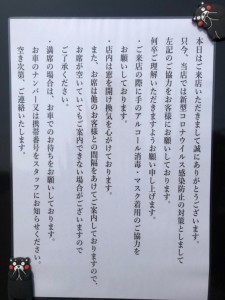 本日はご来店いただきまして誠にありがとうございます。
只今、当店では新型コロナウイルス感染防止の対策としまして
左記のご協力をお客様にお願いしております。
何卒ご理解いただきますようお願い申し上げます。
・ご来店の際に手のアルコール消毒・マスク着用のご協力を
お願いしております。
・店内は窓を開け換気を心がけております。
また、お席は他のお客様との間隔をあけてご案内しておりますので、
お席が空いていてもご案内できない場合がございますので
ご了承ください。
・満席の場合は、お車でのお待ちをお願いしております。
お車のナンバー又は携帯番号をスタッフにお知らせください。
空き次第、ご連絡いたします。